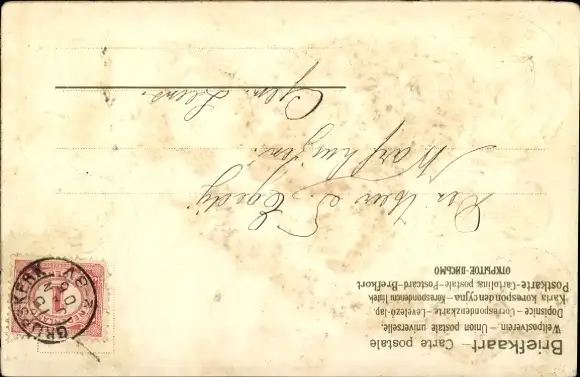 Briefkaart – Carte postale
Weltpostverein – Union postale universelle.
Dopisnice – Correspondenzkarte – Levelező-lap.
Karta korespondencyjna – Korespondenční lístek
Postkarte – Cartolina postale – Postcard – Brefkort
ОТКРЫТОЕ ПИСЬМО
Den Heer
Warfhuizen.
Gem. Leens.
GRIJPSKERK
1